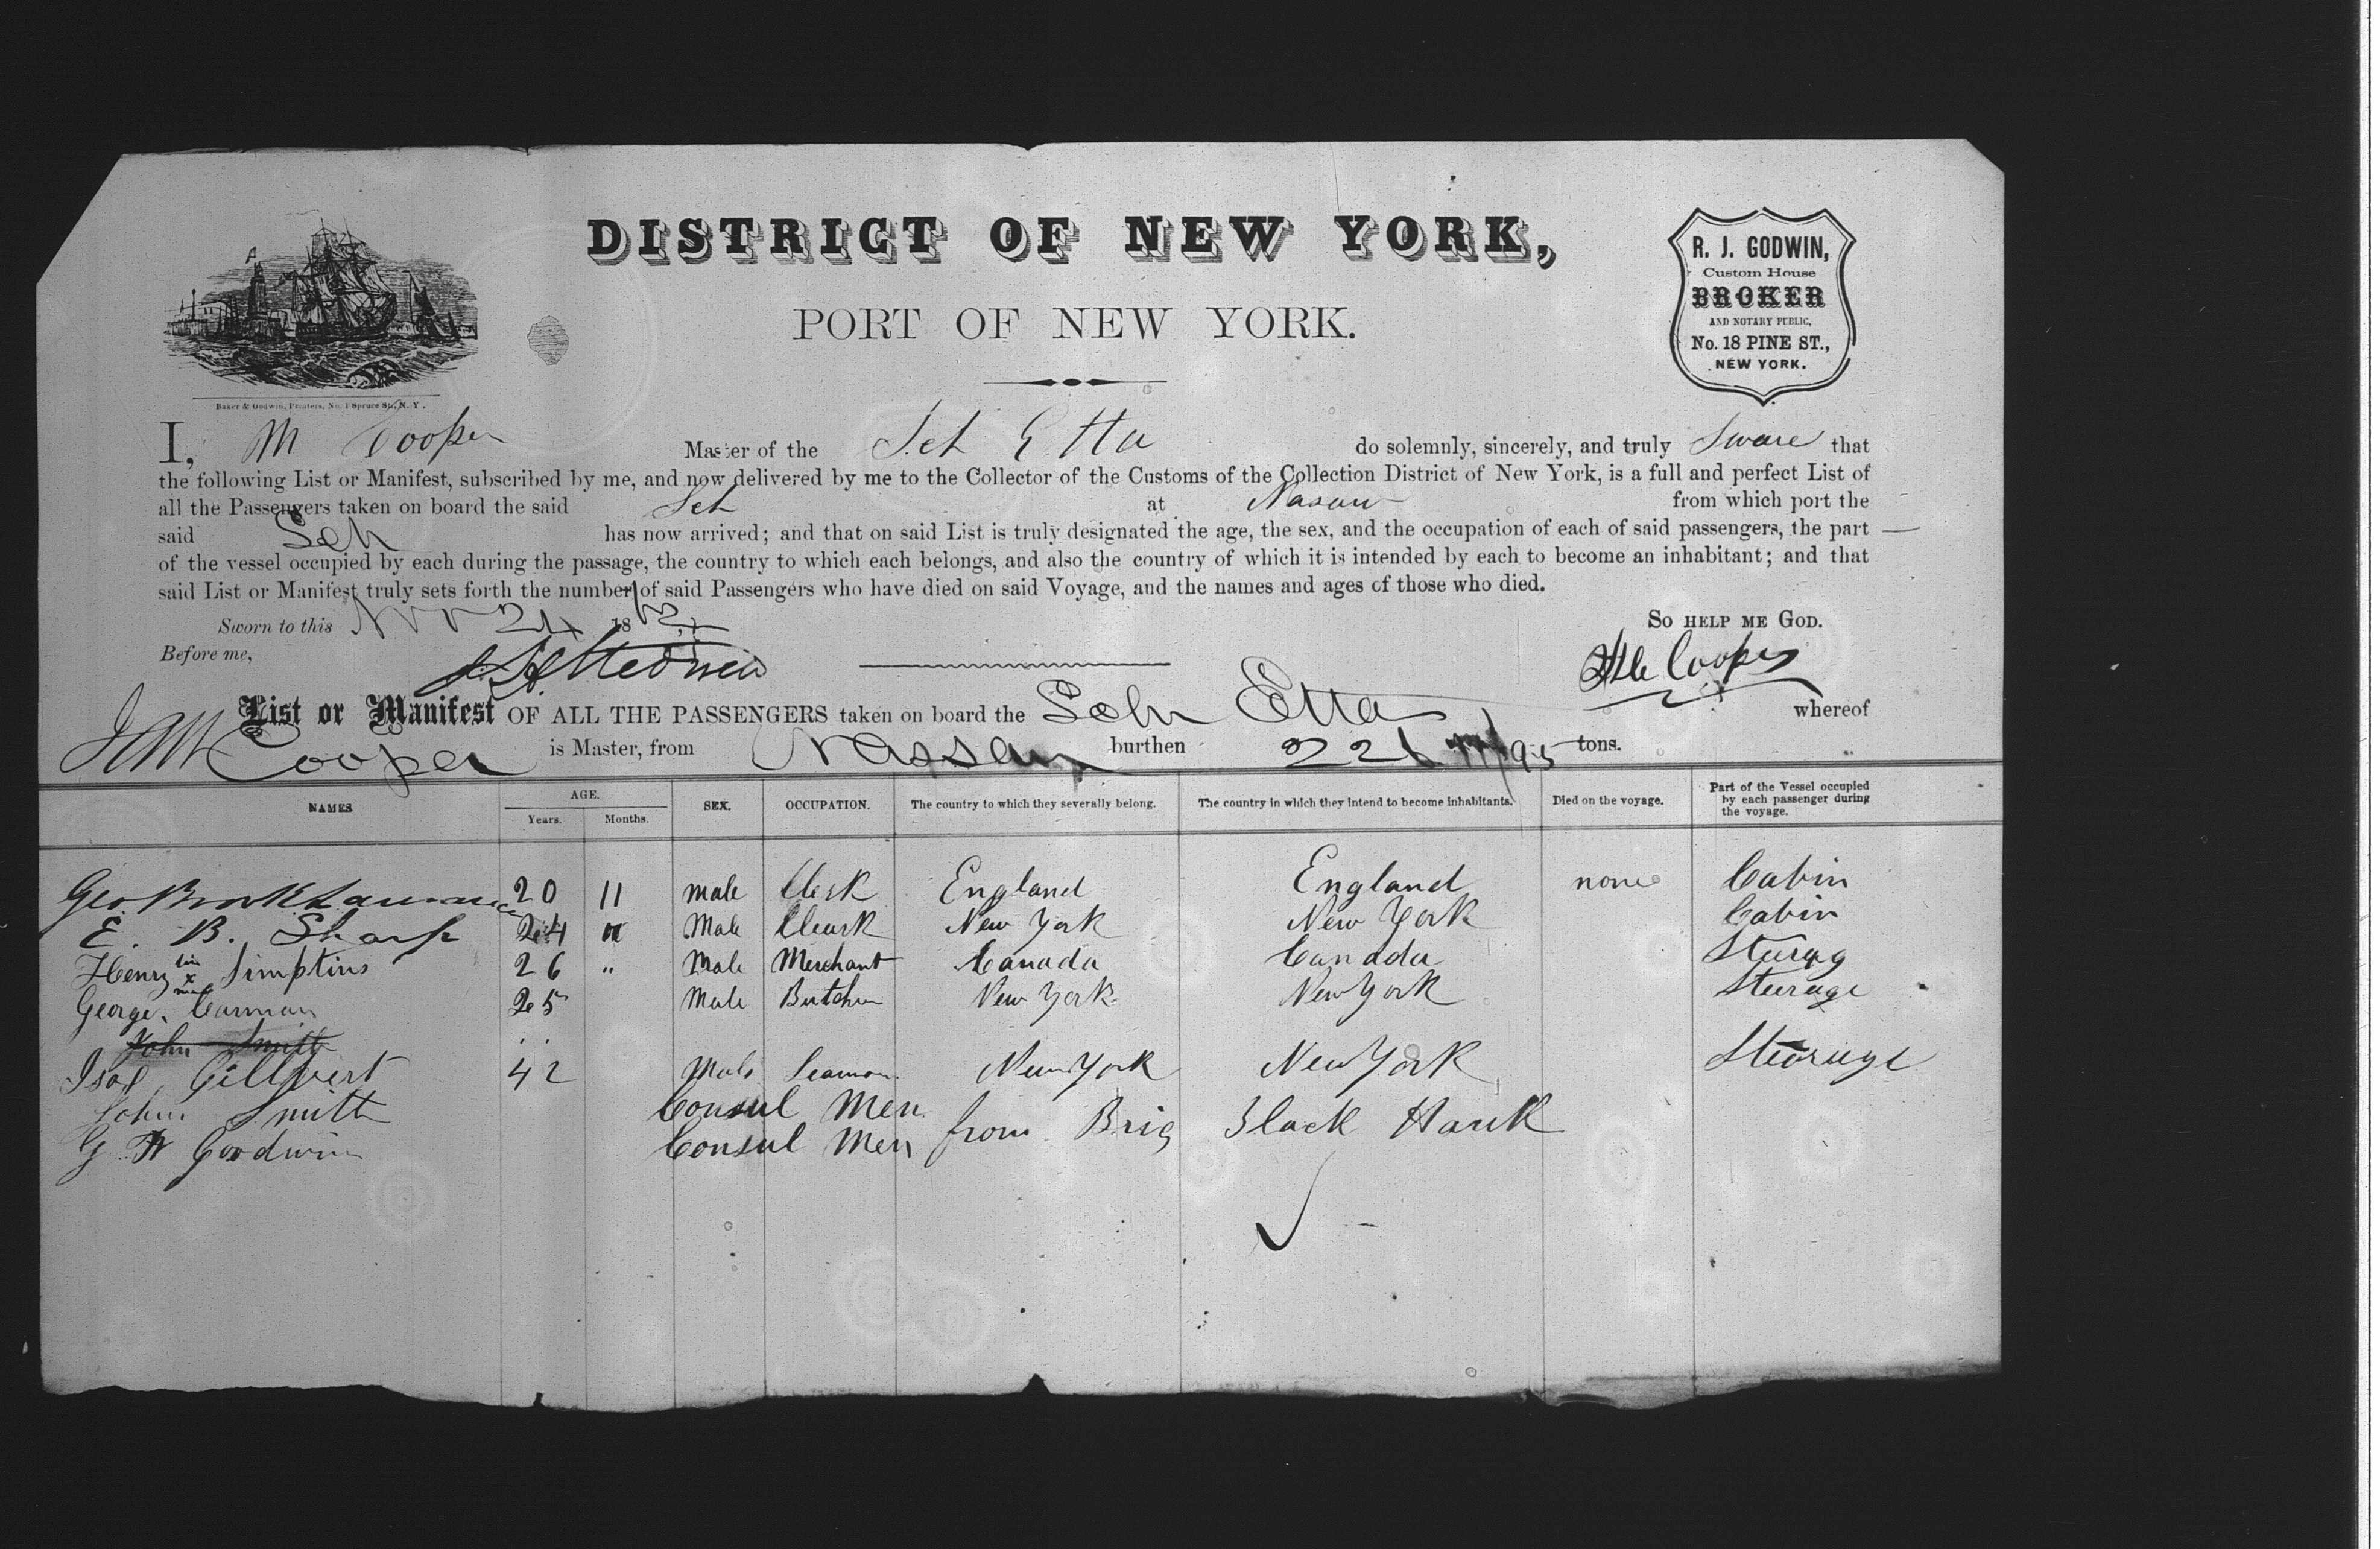 DISTRICT OF NEW YORK,
PORT OF NEW YORK.
R. J. GODWIN,
Custom House
BROKER
AND NOTARY PUBLIC,
No. 18 PINE ST.,
NEW YORK.
Baker & Godwin, Printers, No. 1 Spruce St., N. Y.
I, M Cooper Master of the Sch Etta do solemnly, sincerely, and truly Sware that
the following List or Manifest, subscribed by me, and now delivered by me to the Collector of the Customs of the Collection District of New York, is a full and perfect List of
all the Passengers taken on board the said Sch at Nasau from which port the
said Sch has now arrived; and that on said List is truly designated the age, the sex, and the occupation of each of said passengers, the part
of the vessel occupied by each during the passage, the country to which each belongs, and also the country of which it is intended by each to become an inhabitant; and that
said List or Manifest truly sets forth the number of said Passengers who have died on said Voyage, and the names and ages of those who died.
Sworn to this Nov 24 18 SO HELP ME GOD.
Before me, Cooper
List or Manifest OF ALL THE PASSENGERS taken on board the Schr Etta whereof
Cooper is Master, from Nassau burthen 221 /95 tons.
NAMES AGE. Years. Months. SEX. OCCUPATION. The country to which they severally belong. The country in which they intend to become inhabitants. Died on the voyage. Part of the Vessel occupied by each passenger during the voyage.
Geo 20 11 male Clerk England England none Cabin
E. B. Sharp 24 Male Cleark New York New York Cabin
Henry his x mark Simpkins 26 " Male Merchant Canada Canada Sturag
George Carman 25 Male Butcher New York New York Sturage
John Smith
Gillvert 42 Male Seaman New York New York Steorage
John Smith Consul Men
G W Goodwin Consul Men from Brig Black Hauk